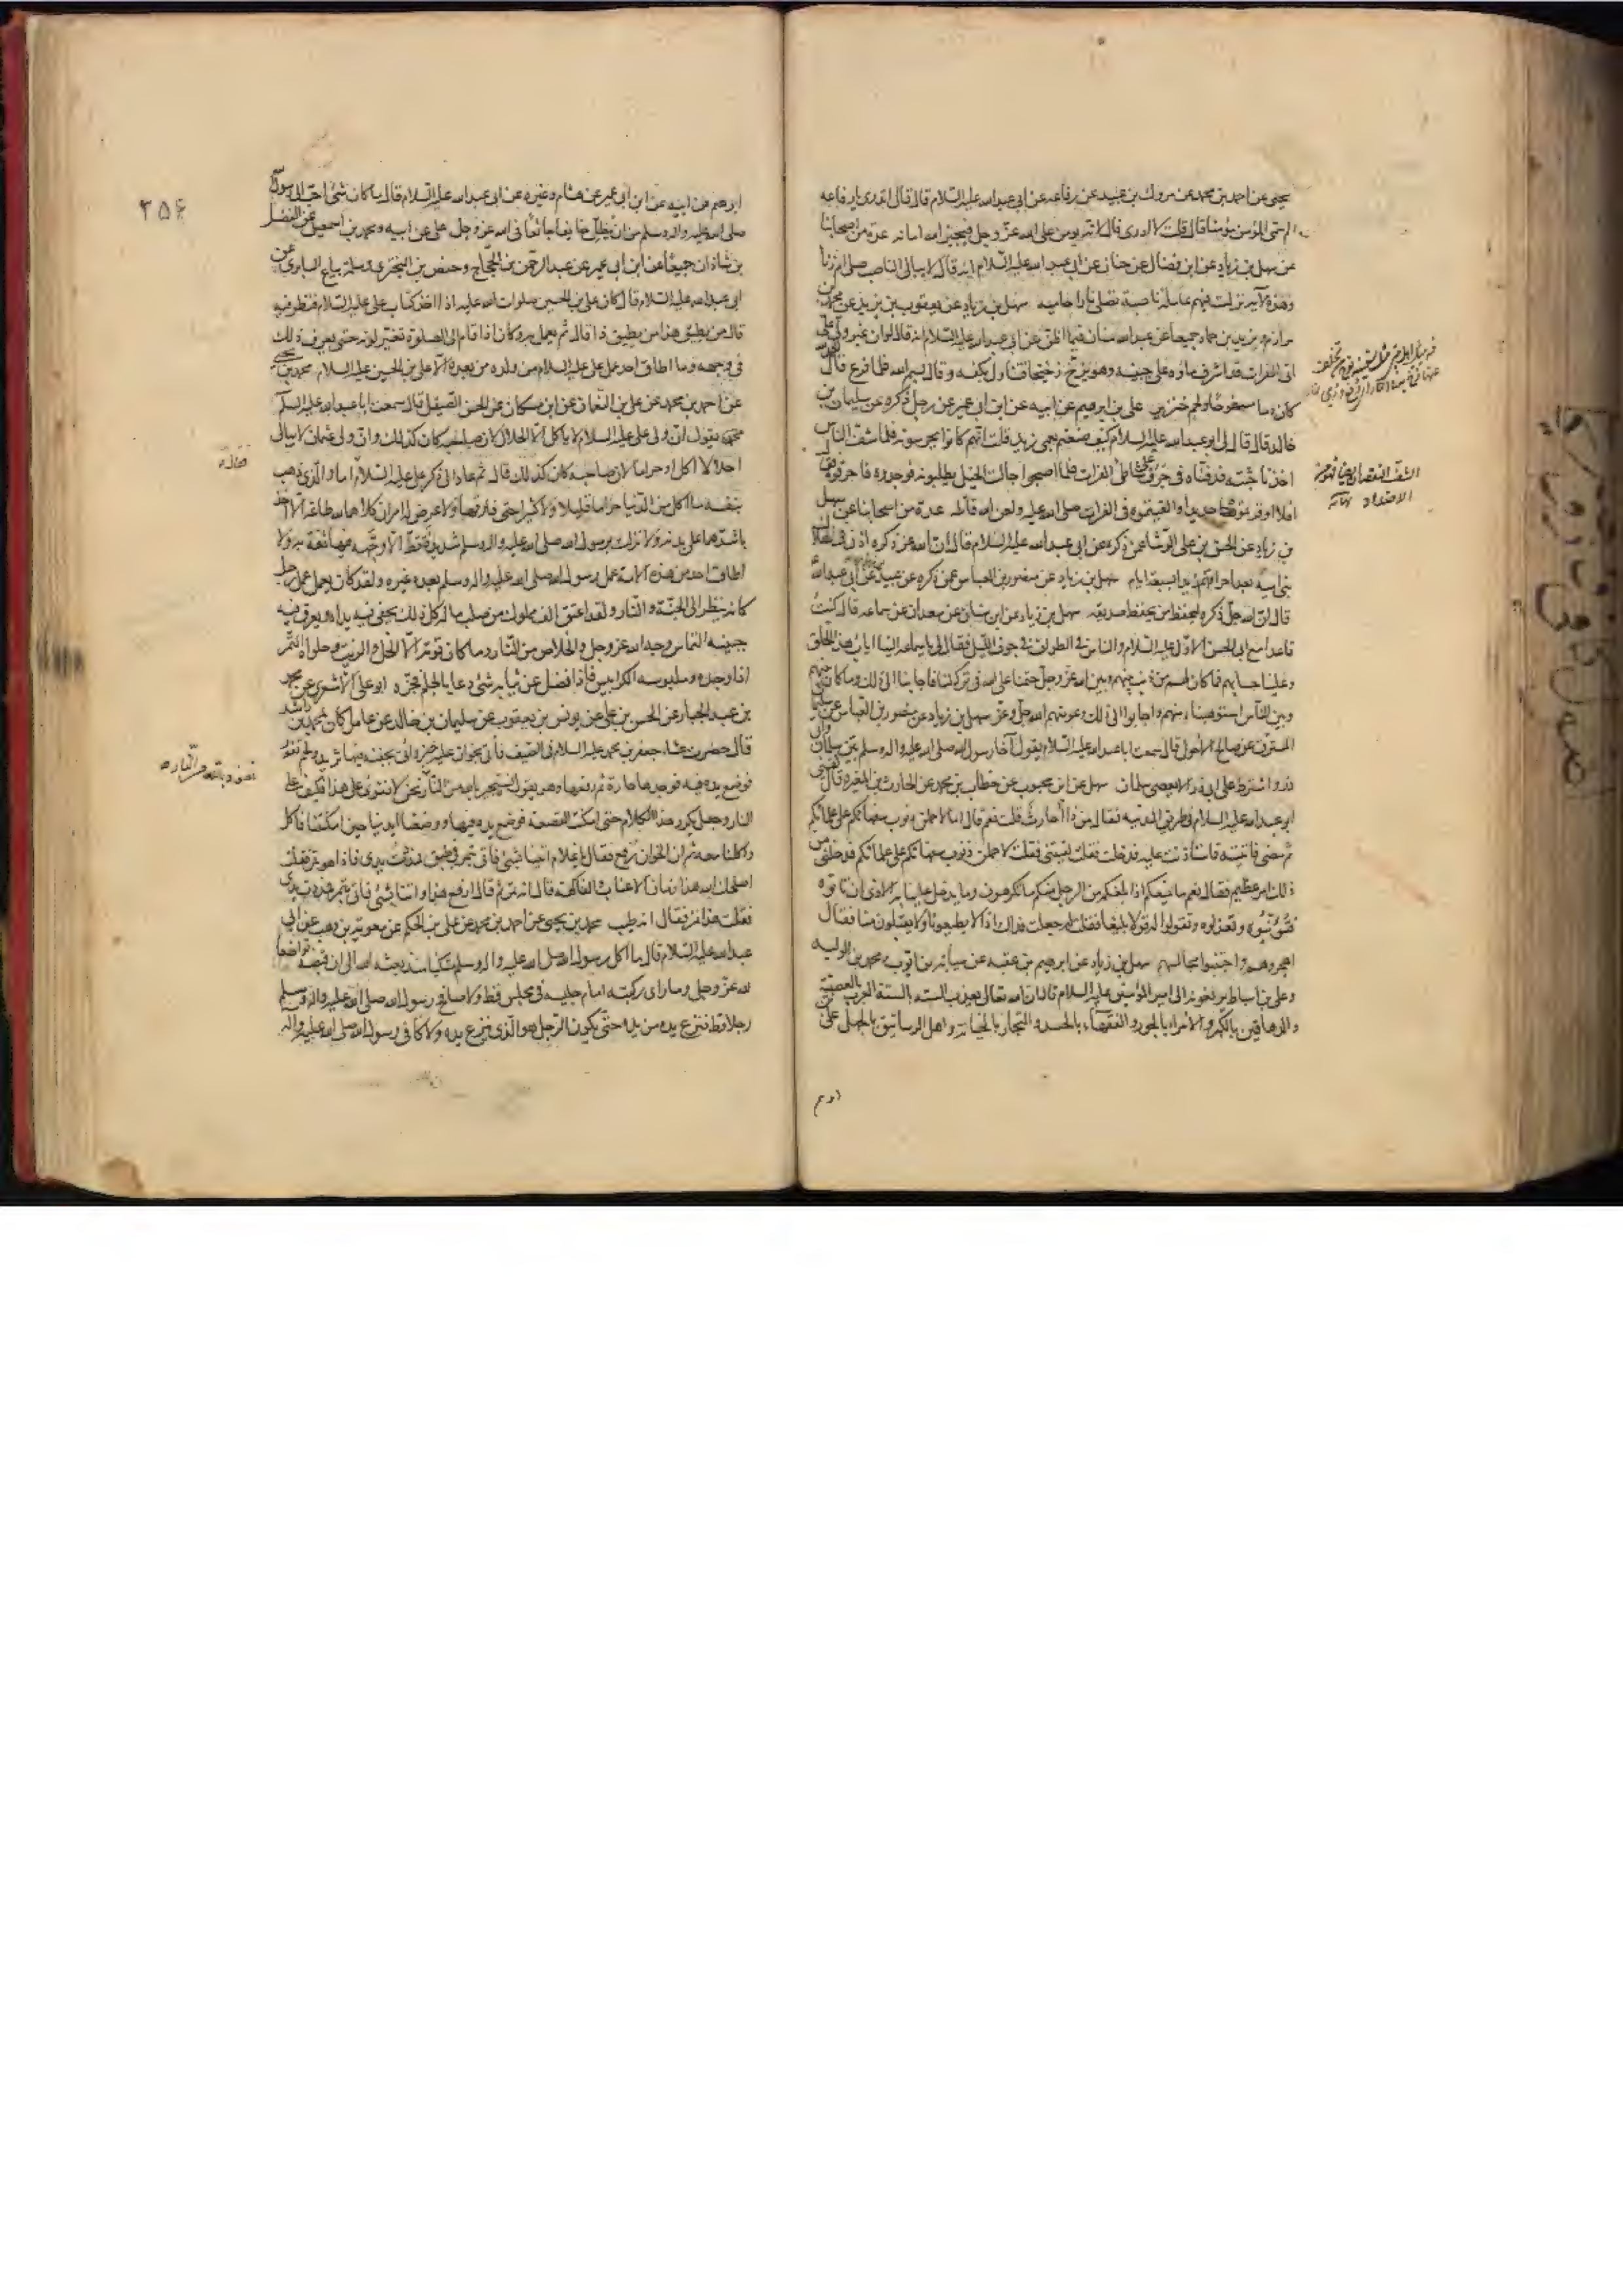 يحيى عن احمد بن محمد عن مروك بن عبيد عن رفاعه عن ابي عبدالله عليه السلام قال قال اتدري يا رفاعه
لم سمي المؤمن مؤمنا قال قلت لا ادري قال لانه يؤمن على الله عز وجل فيجيز الله امانه عدة من اصحابنا
عن سهل بن زياد عن ابن فضال عن حنان عن ابي عبد الله عليه السلام انه قال لا يبالي الناصب صلى ام زنا
وهذه الآية نزلت فيهم عاملة ناصبة تصلى نارا حاميه سهل بن زياد عن يعقوب بن يزيد عن محمد بن
مرازم ويزيد بن حماد جميعا عن عبدالله بن سنان فيما اظن عن ابي عبدالله عليه السلام انه قال لو ان غير ولي علي
اتى الفرات قد اشرف ماؤه على جنبيه وهو يزخ زخيخا فتناول بكفه وقال بسم الله فلما فرغ قال
كان دما مسفوحا او لحم خنزير علي بن ابرهيم عن ابيه عن ابن ابي عمير عن رجل ذكره عن سليمان بن
خالد قال قال لي ابو عبد الله عليه السلام كيف صنعتم بعمي زيد قلت انهم كانوا يحرسونه فلما شف الناس
اخذنا جثته فدفناه في جرف على شاطئ الفرات فلما اصبحوا جالت الخيل يطلبونه فوجدوه فاحرقوه فقال
افلا اوقرتموه حديدا والقيتموه في الفرات صلى الله عليه ولعن الله قاتله عدة من اصحابنا عن سهل
بن زياد عن الحسن بن علي الوشا عمن ذكره عن ابي عبد الله عليه السلام قال ان الله عز ذكره اذن في هلاك
بني امية بعد احراقهم زيدا بسبعة ايام سهل بن زياد عن منصور بن العباس عمن ذكره عن عبيد عن ابي عبدالله
قال ان الله جل ذكره ليحفظ من يحفظ صديقه سهل بن زياد عن ابن سنان عن سعدان عن سماعه قال كنت
قاعدا مع ابي الحسن الاول عليه السلام والناس في الطواف في جوف الليل فقال لي يا سماعه الينا اياب هذا الخلق
وعلينا حسابهم فما كان لهم من ذنب بينهم وبين الله عز وجل حتمنا على الله في تركه لنا فاجابنا الى ذلك وما كان بينهم
وبين الناس استوهبناه منهم واجابوا الى ذلك وعوضهم الله جل وعز سهل بن زياد عن منصور بن العباس عن سليمان
المسترق عن صالح الاحول قال سمعت ابا عبد الله عليه السلام يقول آخا رسول الله صلى الله عليه واله وسلم بين سلمان وابي
ذر واشترط على ابي ذر الا يعصي سلمان سهل عن ابن محبوب عن خطاب بن محمد عن الحارث بن المغيره قال لقيني
ابو عبد الله عليه السلام في طريق المدينه فقال من ذا أحارث قلت نعم قال اما لاحملن ذنوب سفهائكم على علمائكم
ثم مضى فاتيته فاستأذنت عليه فدخلت فقلت لقيتني فقلت لاحملن ذنوب سفهائكم على علمائكم فدخلني من
ذلك امر عظيم فقال نعم ما يمنعكم اذا بلغكم من الرجل منكم ما تكرهون وما يدخل علينا به الاذى ان تاتوه
فتؤنبوه وتعذلوه وتقولوا له قولا بليغا فقلت له جعلت فداك اذا لا يطيعونا ولا يقبلون منا فقال
اهجروهم واجتنبوا مجالسهم سهل بن زياد عن ابرهيم بن عقبه عن سيابه بن ايوب ومحمد بن الوليد
وعلي بن اسباط يرفعونه الى امير المؤمنين عليه السلام قال ان الله تعالى يعذب الستة بالستة العرب بالعصبية
والدهاقين بالكبر والامراء بالجور والفقهاء بالحسد والتجار بالخيانة واهل الرساتيق بالجهل علي بن
ابرهيم
الشف النقصان
الاضداد نهاية
۲۵۶
ابرهيم عن ابيه عن ابن ابي عمير عن هشام وغيره عن ابي عبدالله عليه السلام قال ما كان شئ احب الى رسول الله
صلى الله عليه واله وسلم من ان يظل خايفا جائعا في الله عز وجل علي عن ابيه ومحمد بن اسمعيل عن الفضل
بن شاذان جميعا عن ابن ابي عمير عن عبد الرحمن بن الحجاج وحفص بن البختري وسلمة بياع السابري عن
ابي عبدالله عليه السلام قال كان علي بن الحسين صلوات الله عليه اذا اخذ كتاب علي عليه السلام فنظر فيه
قال من يطيق هذا من يطيق ذا قال ثم يعمل به وكان اذا قام الى الصلوة تغير لونه حتى يعرف ذلك
في وجهه وما اطاق احد عمل علي عليه السلام من ولده من بعده الا علي بن الحسين عليه السلام محمد بن يحيى
عن احمد بن محمد عن علي بن النعمان عن ابن مسكان عن الحسن الصيقل قال سمعت ابا عبدالله عليه السلام
يقول ان ولي علي عليه السلام لا ياكل الا الحلال لان صاحبه كان كذلك وان ولي عثمان لا يبالي
احلالا اكل او حراما لان صاحبه كان كذلك قال ثم عاد الى ذكر علي عليه السلام اما والذي ذهب
بنفسه ما اكل من الدنيا حراما قليلا ولا كثيرا حتى فارقها ولا عرض له امران كلاهما لله طاعة الا اخذ
باشدهما على بدنه ولا نزلت برسول الله صلى الله عليه واله وسلم شديدة قط الا وجهه فيها ثقة به ولا
اطاق احد من هذه الامة عمل رسول الله صلى الله عليه واله وسلم بعده غيره ولقد كان يعمل عمل رجل
كانه ينظر الى الجنة والنار ولقد اعتق الف مملوك من صلب ماله كل ذلك تحفى فيه يداه ويعرق فيه
جبينه التماس وجه الله عز وجل والخلاص من النار وما كان قوته الا الخل والزيت وحلواه التمر
اذا وجده وملبوسه الكرابيس فاذا فضل عن ثيابه شئ دعا بالجلم فجزه ابو علي الاشعري عن محمد
بن عبد الجبار عن الحسن بن علي عن يونس بن يعقوب عن سليمان بن خالد عن عامل كان لمحمد بن راشد
قال حضرت عشاء جعفر بن محمد عليه السلام في الصيف فأتي بخوان عليه خبز واتي بجفنة فيها ثريد ولحم تفور
فوضع يده فيه فوجدها حارة ثم رفعها وهو يقول نستجير بالله من النار نحن لا نقوى على هذا فكيف على
النار وجعل يكرر هذا الكلام حتى امكنت القصعة فوضع يده فيها ووضعنا ايدينا حين امكننا فاكل
واكلنا معه ثم ان الخوان رفع فقال يا غلام ائتنا بشئ فاتي بتمر في طبق فمددت يدي فاذا هو تمر فقلت
اصلحك الله هذا زمان الاعناب والفاكهة قال انه تمر ثم قال ارفع هذا واتنا بشئ فاتي بتمر فمددت يدي
فقلت هذا تمر فقال انه طيب محمد بن يحيى عن احمد بن محمد عن علي بن الحكم عن معوية بن وهب عن ابي
عبد الله عليه السلام قال ما اكل رسول الله صلى الله عليه واله وسلم متكيا منذ بعثه الله الى ان قبضه تواضعا
لله عز وجل وما راى ركبتيه امام جليسه في مجلس قط ولا صافح رسول الله صلى الله عليه واله وسلم
رجلا قط فنزع يده من يده حتى يكون الرجل هو الذي ينزع يده ولا كافى رسول الله صلى الله عليه واله
نعوذ بالله من النار